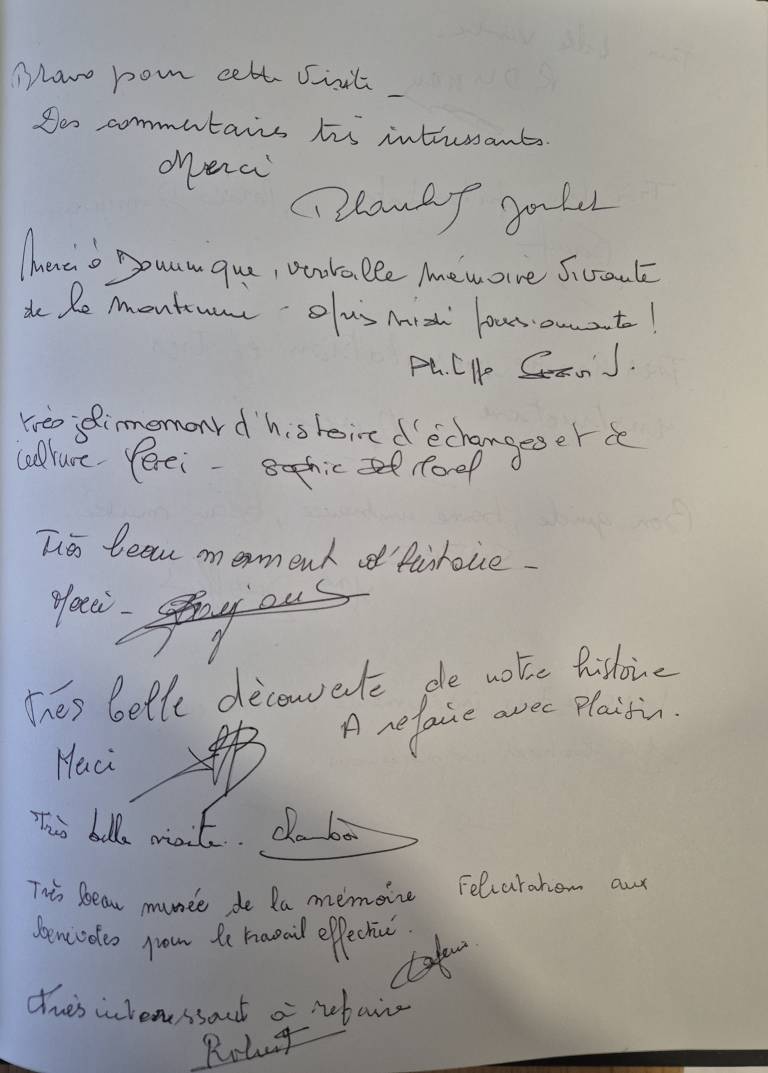 Bravo pour cette visite _
Des commentaires très intéressants.
Merci
Merci à Dominique, véritable mémoire vivante
de la - après midi passionnante !
Philippe
très joli moment d'histoire d'échanges et de
culture - Merci - Sophie
Très beau moment d'histoire -
Merci -
Très belle découverte de notre histoire
A refaire avec Plaisir.
Merci
Très belle visite..
Très beau musée de la mémoire Félicitations aux
bénévoles pour le travail effectué.
très interessant à refaire
Robert